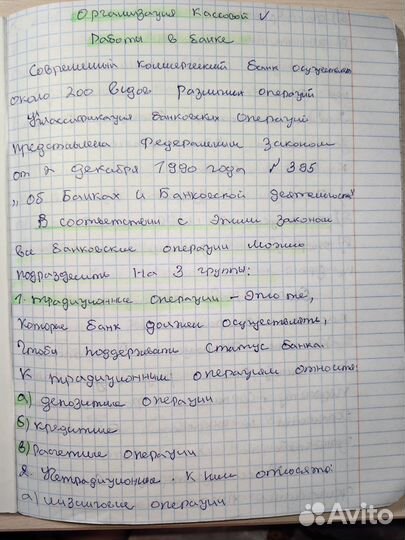 Организация Кассовой ✓
Работы в банке
Современный коммерческий банк осуществляет
около 200 видов различных операций
Классификация банковских операций
представлена Федеральным Законом
от 2 декабря 1990 года № 395
„Об Банках и Банковской деятельности"
В соответствии с этим законом
все банковские операции можно
подразделить на 3 группы:
1. традиционные операции - это те,
которые банк должен осуществлять,
чтобы поддерживать статус банка.
К традиционным операциям относят:
а) депозитные операции
б) кредитные
в) расчетные операции
2. Нетрадиционные. К ним относят:
а) лизинговые операции
Avito